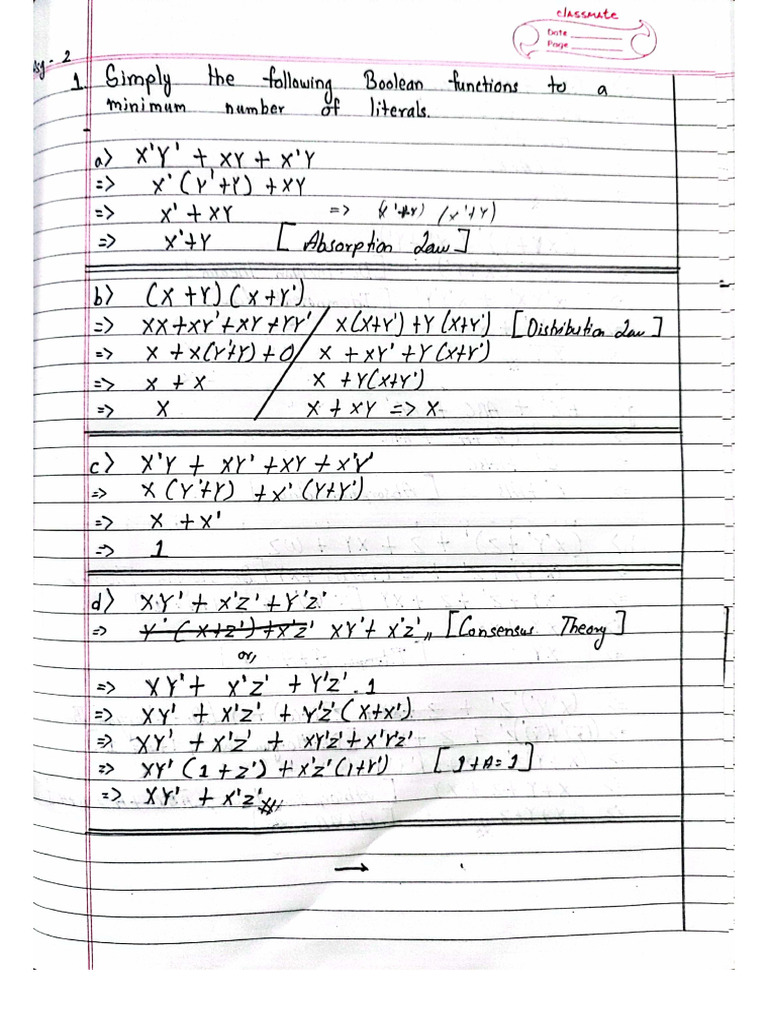 classmate
Date
Page
Asg - 2
1. Simply the following Boolean functions to a
minimum number of literals.
a) X'Y' + XY + X'Y
=> X'(Y'+Y) + XY
=> X' + XY => (X'+X) (X'+Y)
=> X'+Y [Absorption Law]
b) (X+Y)(X+Y')
=> XX+XY'+XY+YY' / X(X+Y') + Y(X+Y') [Distribution Law]
=> X + X(Y'+Y) + 0 / X + XY' + Y(X+Y')
=> X + X / X + Y(X+Y')
=> X / X + XY => X
c) X'Y + XY' + XY + X'Y'
=> X(Y'+Y) + X'(Y+Y')
=> X + X'
=> 1
d) XY' + X'Z' + Y'Z'
=> Y'(X+Z')+X'Z' XY'+ X'Z',, [Consensus Theory]
or,
=> XY' + X'Z' + Y'Z'.1
=> XY' + X'Z' + Y'Z'(X+X')
=> XY' + X'Z' + XY'Z' + X'Y'Z'
=> XY'(1+Z') + X'Z'(1+Y') [1+A=1]
=> XY' + X'Z'
→